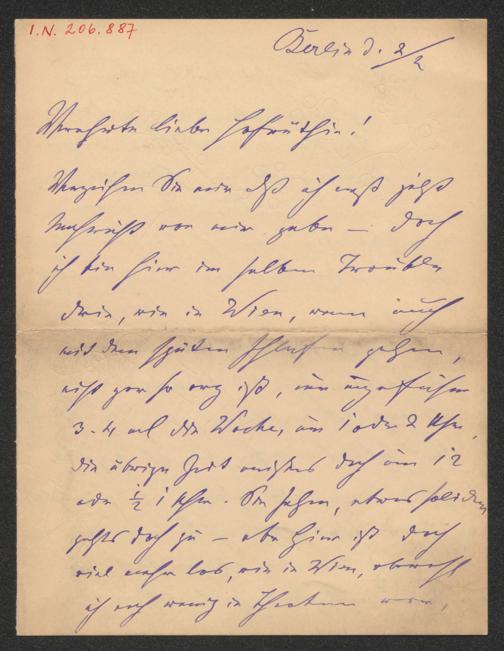 I.N. 206.887
Berlin d. 2/2
Verehrte liebe Hofräthin!
Verzeihen Sie mir daß ich erst jetzt
Nachricht von mir gebe — doch
ich bin hier im selben Trouble
drin, wie in Wien, wenn auch
mit dem späten Schlafen gehen,
nicht gar so arg ist, nur ungefähr
3-4 mal die Woche, um 1 oder 2 Uhr,
die übrige Zeit meistens doch um 12
oder ½ 1 Uhr. Sie sehen, etwas solider
gehts doch zu — aber hier ist doch
viel mehr los, wie in Wien, obwohl
ich noch wenig in Theatern war,